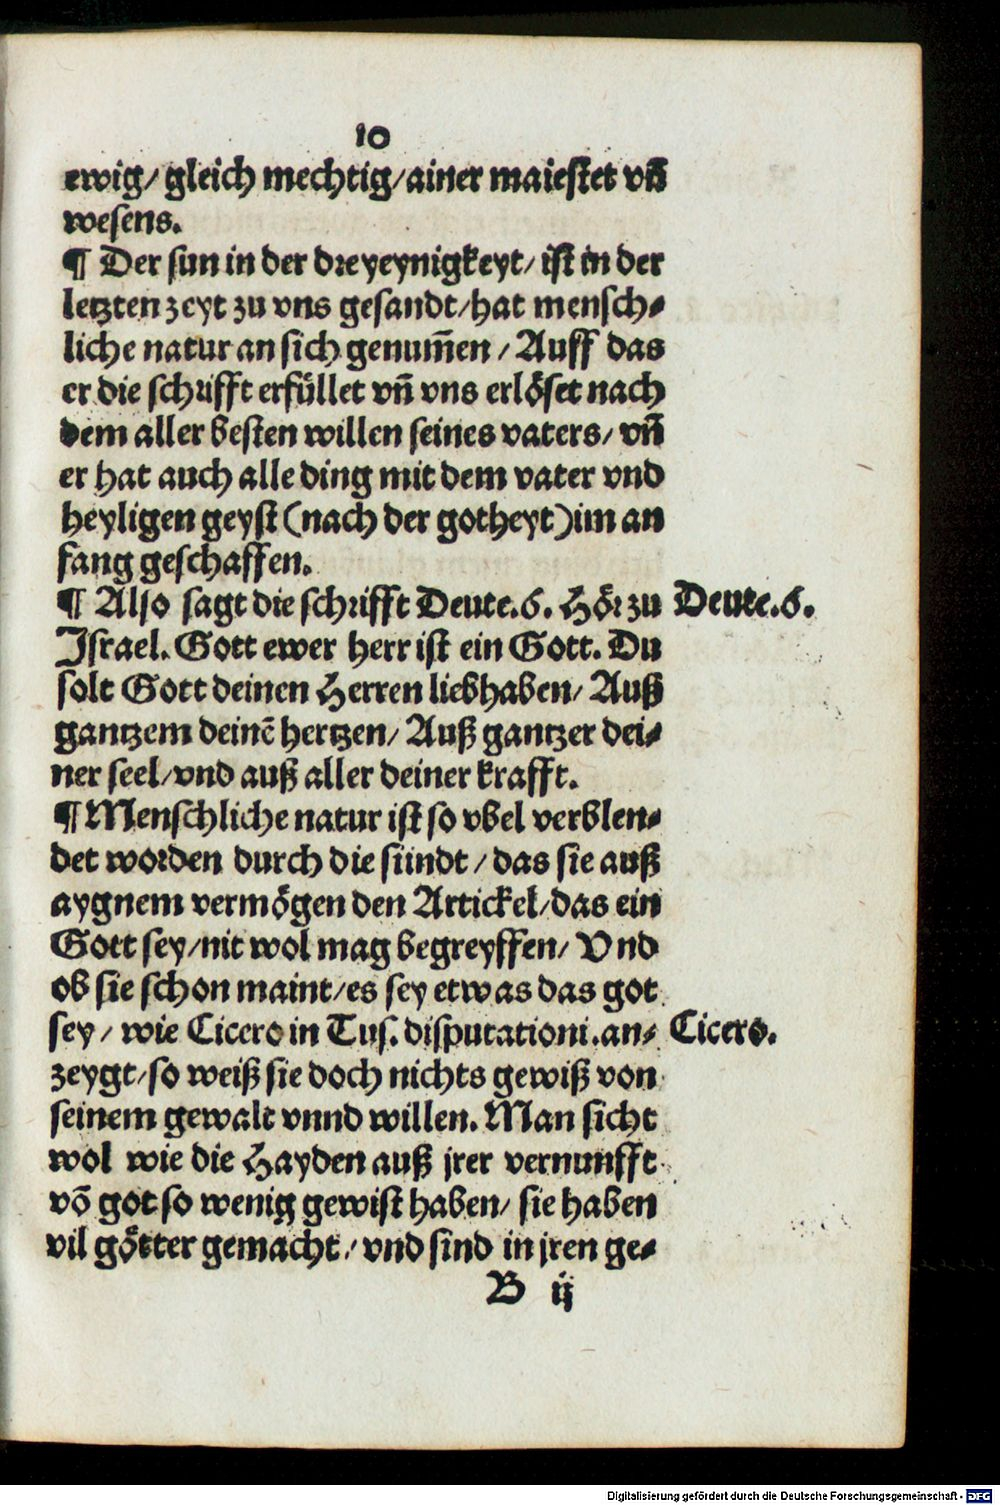 10
ewig/ gleich mechtig/ ainer maiestet vñ
wesens.
¶ Der sun in der dreyeynigkeyt/ ist in der
letzten zeyt zu vns gesandt/ hat mensch⸗
liche natur an sich genum̃en / Auff das
er die schrifft erfüllet vñ vns erlöset nach
dem aller besten willen seines vaters/ vñ
er hat auch alle ding mit dem vater vnd
heyligen geyst (nach der gotheyt) im an
fang geschaffen.
¶ Also sagt die schrifft Deute.6. Hör zu Deute.6.
Israel. Gott ewer herr ist ein Gott. Du
solt Gott deinen Herren liebhaben/ Auß
gantzem deinē hertzen/ Auß gantzer dei⸗
ner seel/ vnd auß aller deiner krafft.
¶ Menschliche natur ist so vbel verblen⸗
det worden durch die sündt / das sie auß
aygnem vermögen den Artickel/ das ein
Gott sey/ nit wol mag begreyffen/ Vnd
ob sie schon maint/ es sey etwas das got
sey / wie Cicero in Tus. disputationi. an⸗ Cicero.
zeygt/ so weiß sie doch nichts gewiß von
seinem gewalt vnnd willen. Man sicht
wol wie die Hayden auß jrer vernunfft
võ got so wenig gewist haben/ sie haben
vil götter gemacht / vnd sind in jren ge⸗
B ij
Digitalisierung gefördert durch die Deutsche Forschungsgemeinschaft - DFG